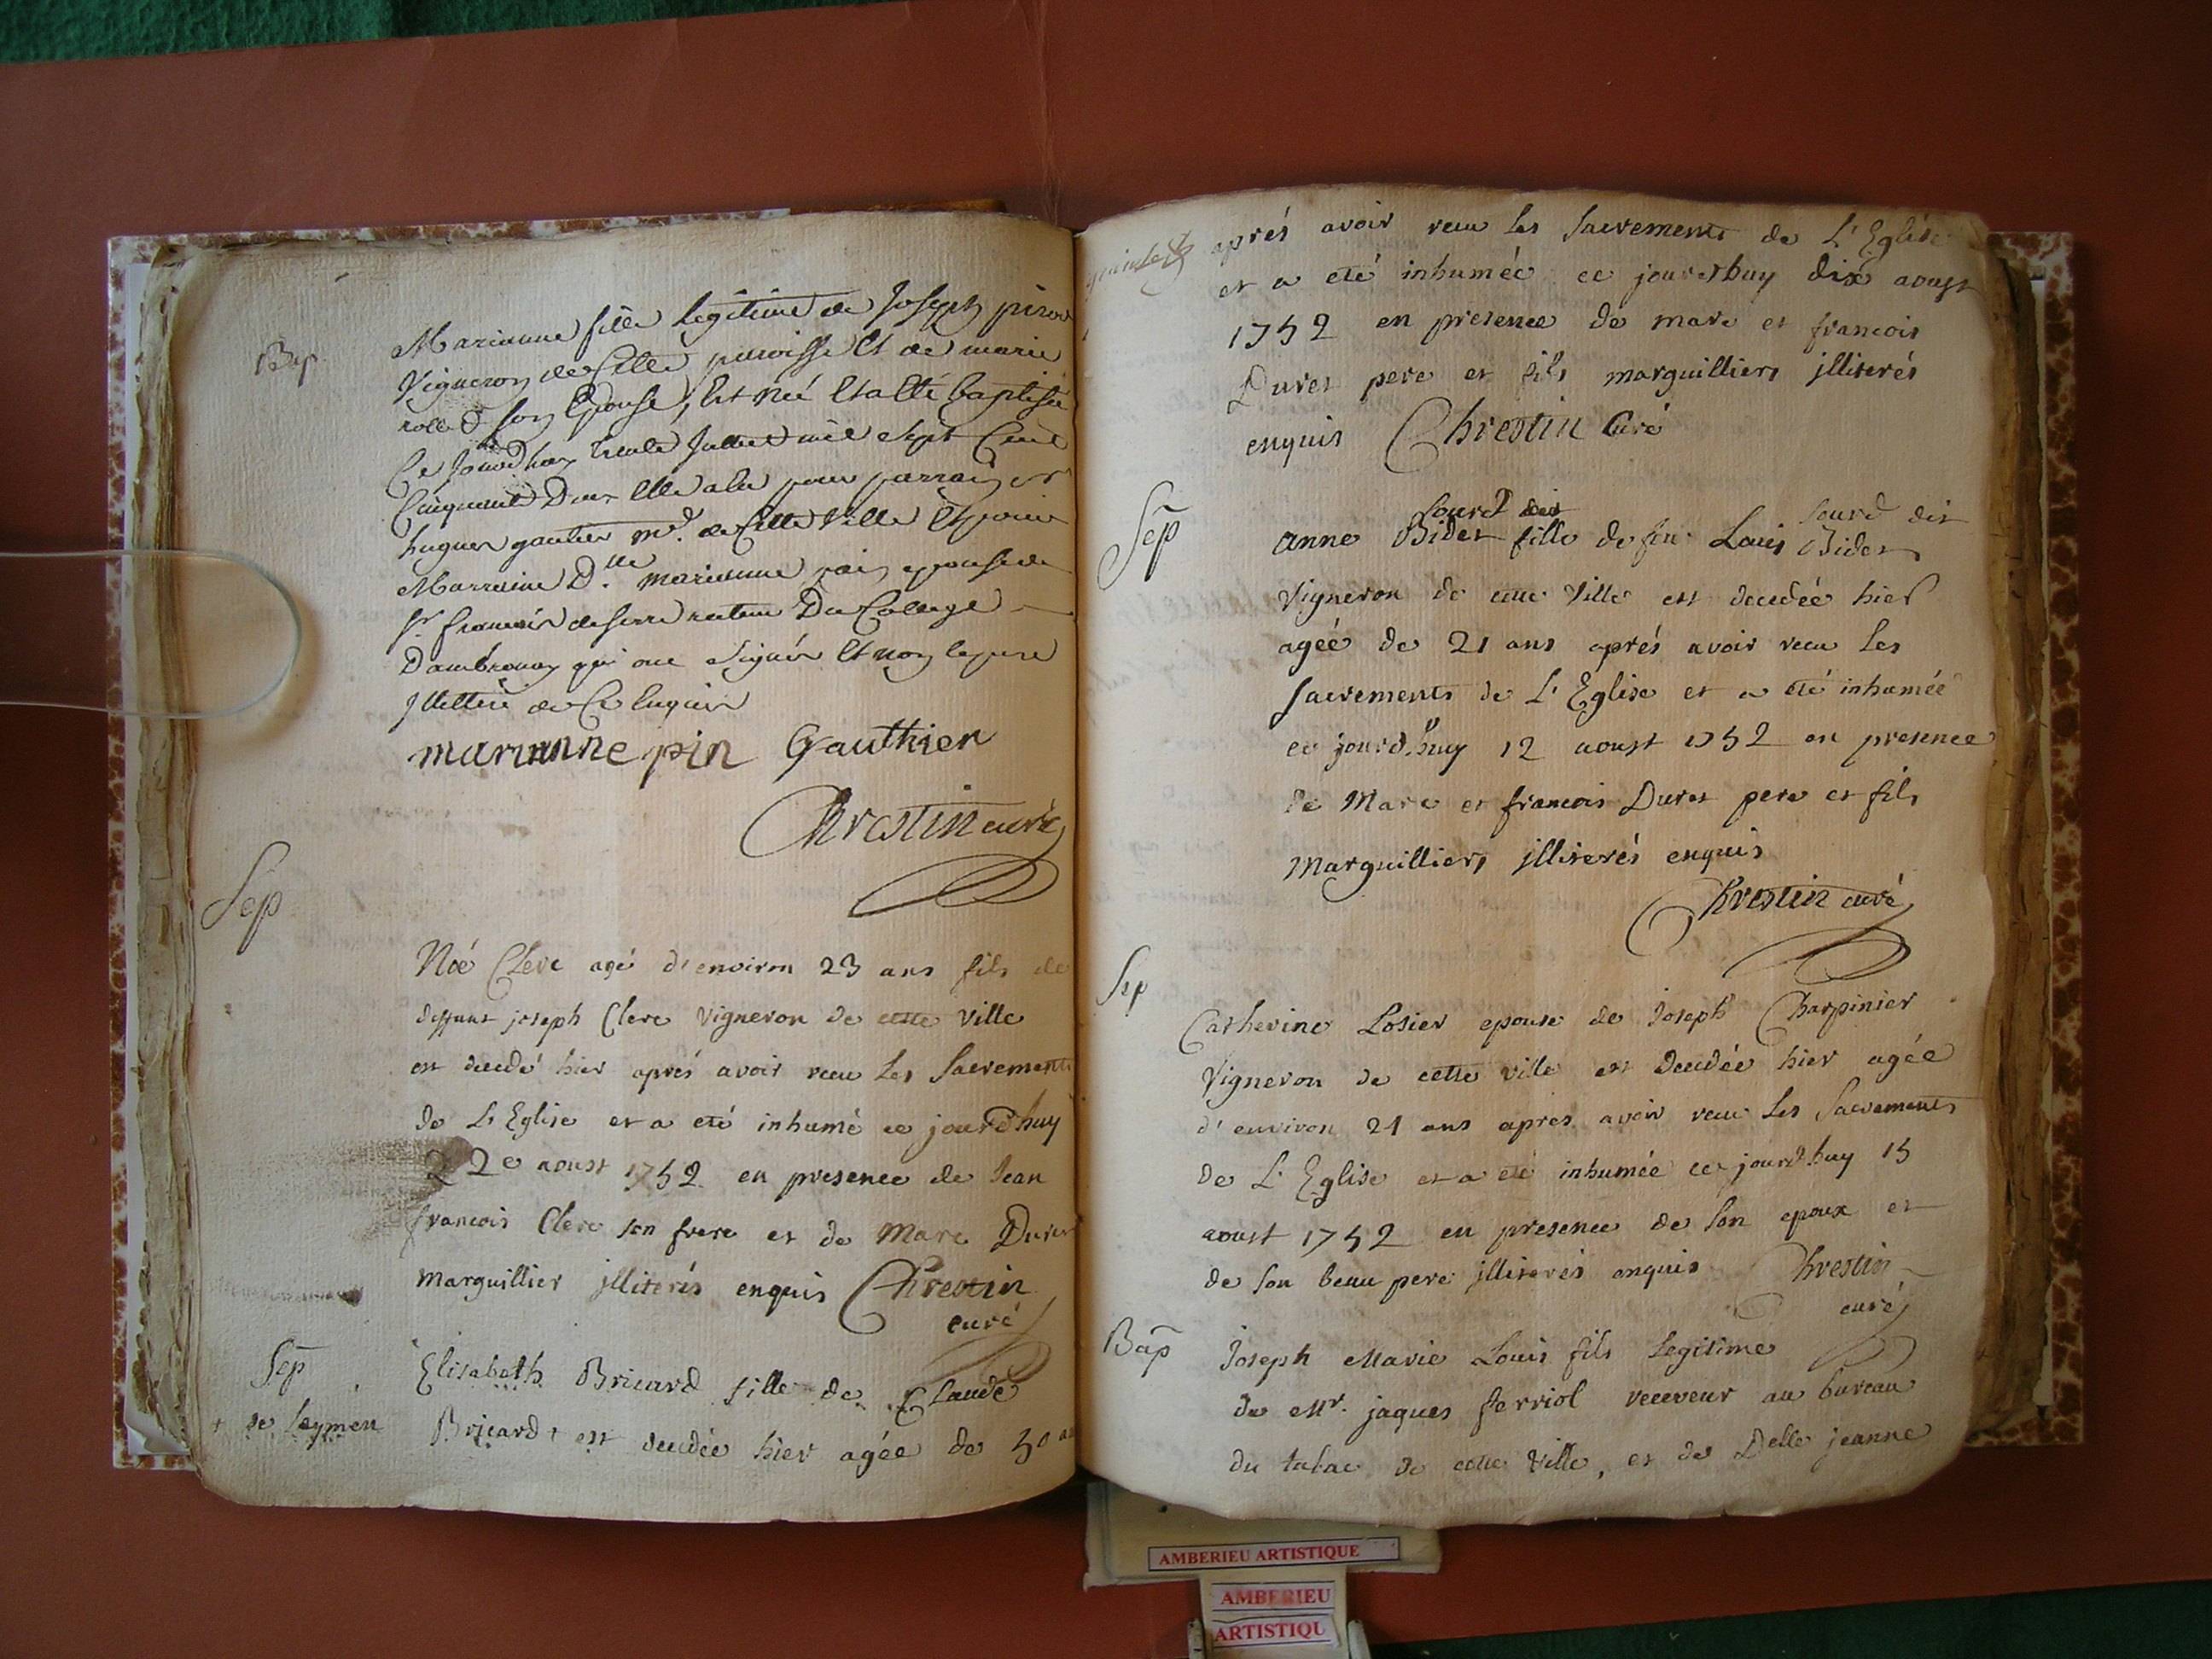 Bap.
Marianne fille legitime de Joseph
Vigneron de Cette paroisse Et de marie
son Epouse, Est née Et a été baptisée
Ce Jourdhuy trente Juillet mil sept Cent
Cinquante Deux Elle a eu pour parrain sr
hugues gautier md. de Cette Ville Et pour
Marraine Dlle marianne pin epouse de
sr francois deserre recteur Du College
Dambronay qui ont signés Et non le pere
Illettré de Ce Enquis
marianne pin Gauthier
Chrestin curé
Sep
Noé Clerc agé d'environ 23 ans fils de
deffunt joseph Clerc Vigneron de cette Ville
est decedé hier aprés avoir receu Les Sacrements
de L'Eglise et a eté inhumé ce jourd'huy
2e aoust 1752 en presence de Jean
francois Clerc son frere et de Marc Duret
Marguillier jlliterés enquis Chrestin
curé
Sep
Elisabeth Bricard fille de Claude
+ de Leymen
Bricard + est decedée hier agée de 50 an
aprés avoir receu Les Sacrements de L'Eglise
et a eté inhumée ce jourdhuy dix aoust
1752 en presence de marc et francois
Duret pere et fils marguilliers jlliterés
enquis Chrestin Curé
Sep
sourd dit sourd dit
anne Bidet fille de feu Louis Bidet
Vigneron de cette Ville est decedée hier
agée de 21 ans aprés avoir receu Les
Sacrements de L'Eglise et a eté inhumée
ce jourd.huy 12 aoust 1752 en presence
de Marc et francois Duret pere et fils
Marguilliers jlliterés enquis
Chrestin curé
Sep
Catherine Losier epouse de Joseph Charpinier
Vigneron de cette ville est decedée hier agée
d'environ 21 ans apres avoir receu Les Sacrements
de L'Eglise et a eté inhumée ce jourd.huy 15
aoust 1752 en presence de son epoux et
de son beau pere jlliterés enquis Chrestin
curé
Bap
Joseph Marie Louis fils Legitime
de Mr. jaques ferriol receveur au bureau
du tabac de cette Ville, et de Delle jeanne
AMBERIEU ARTISTIQUE
AMBERIEU
ARTISTIQU